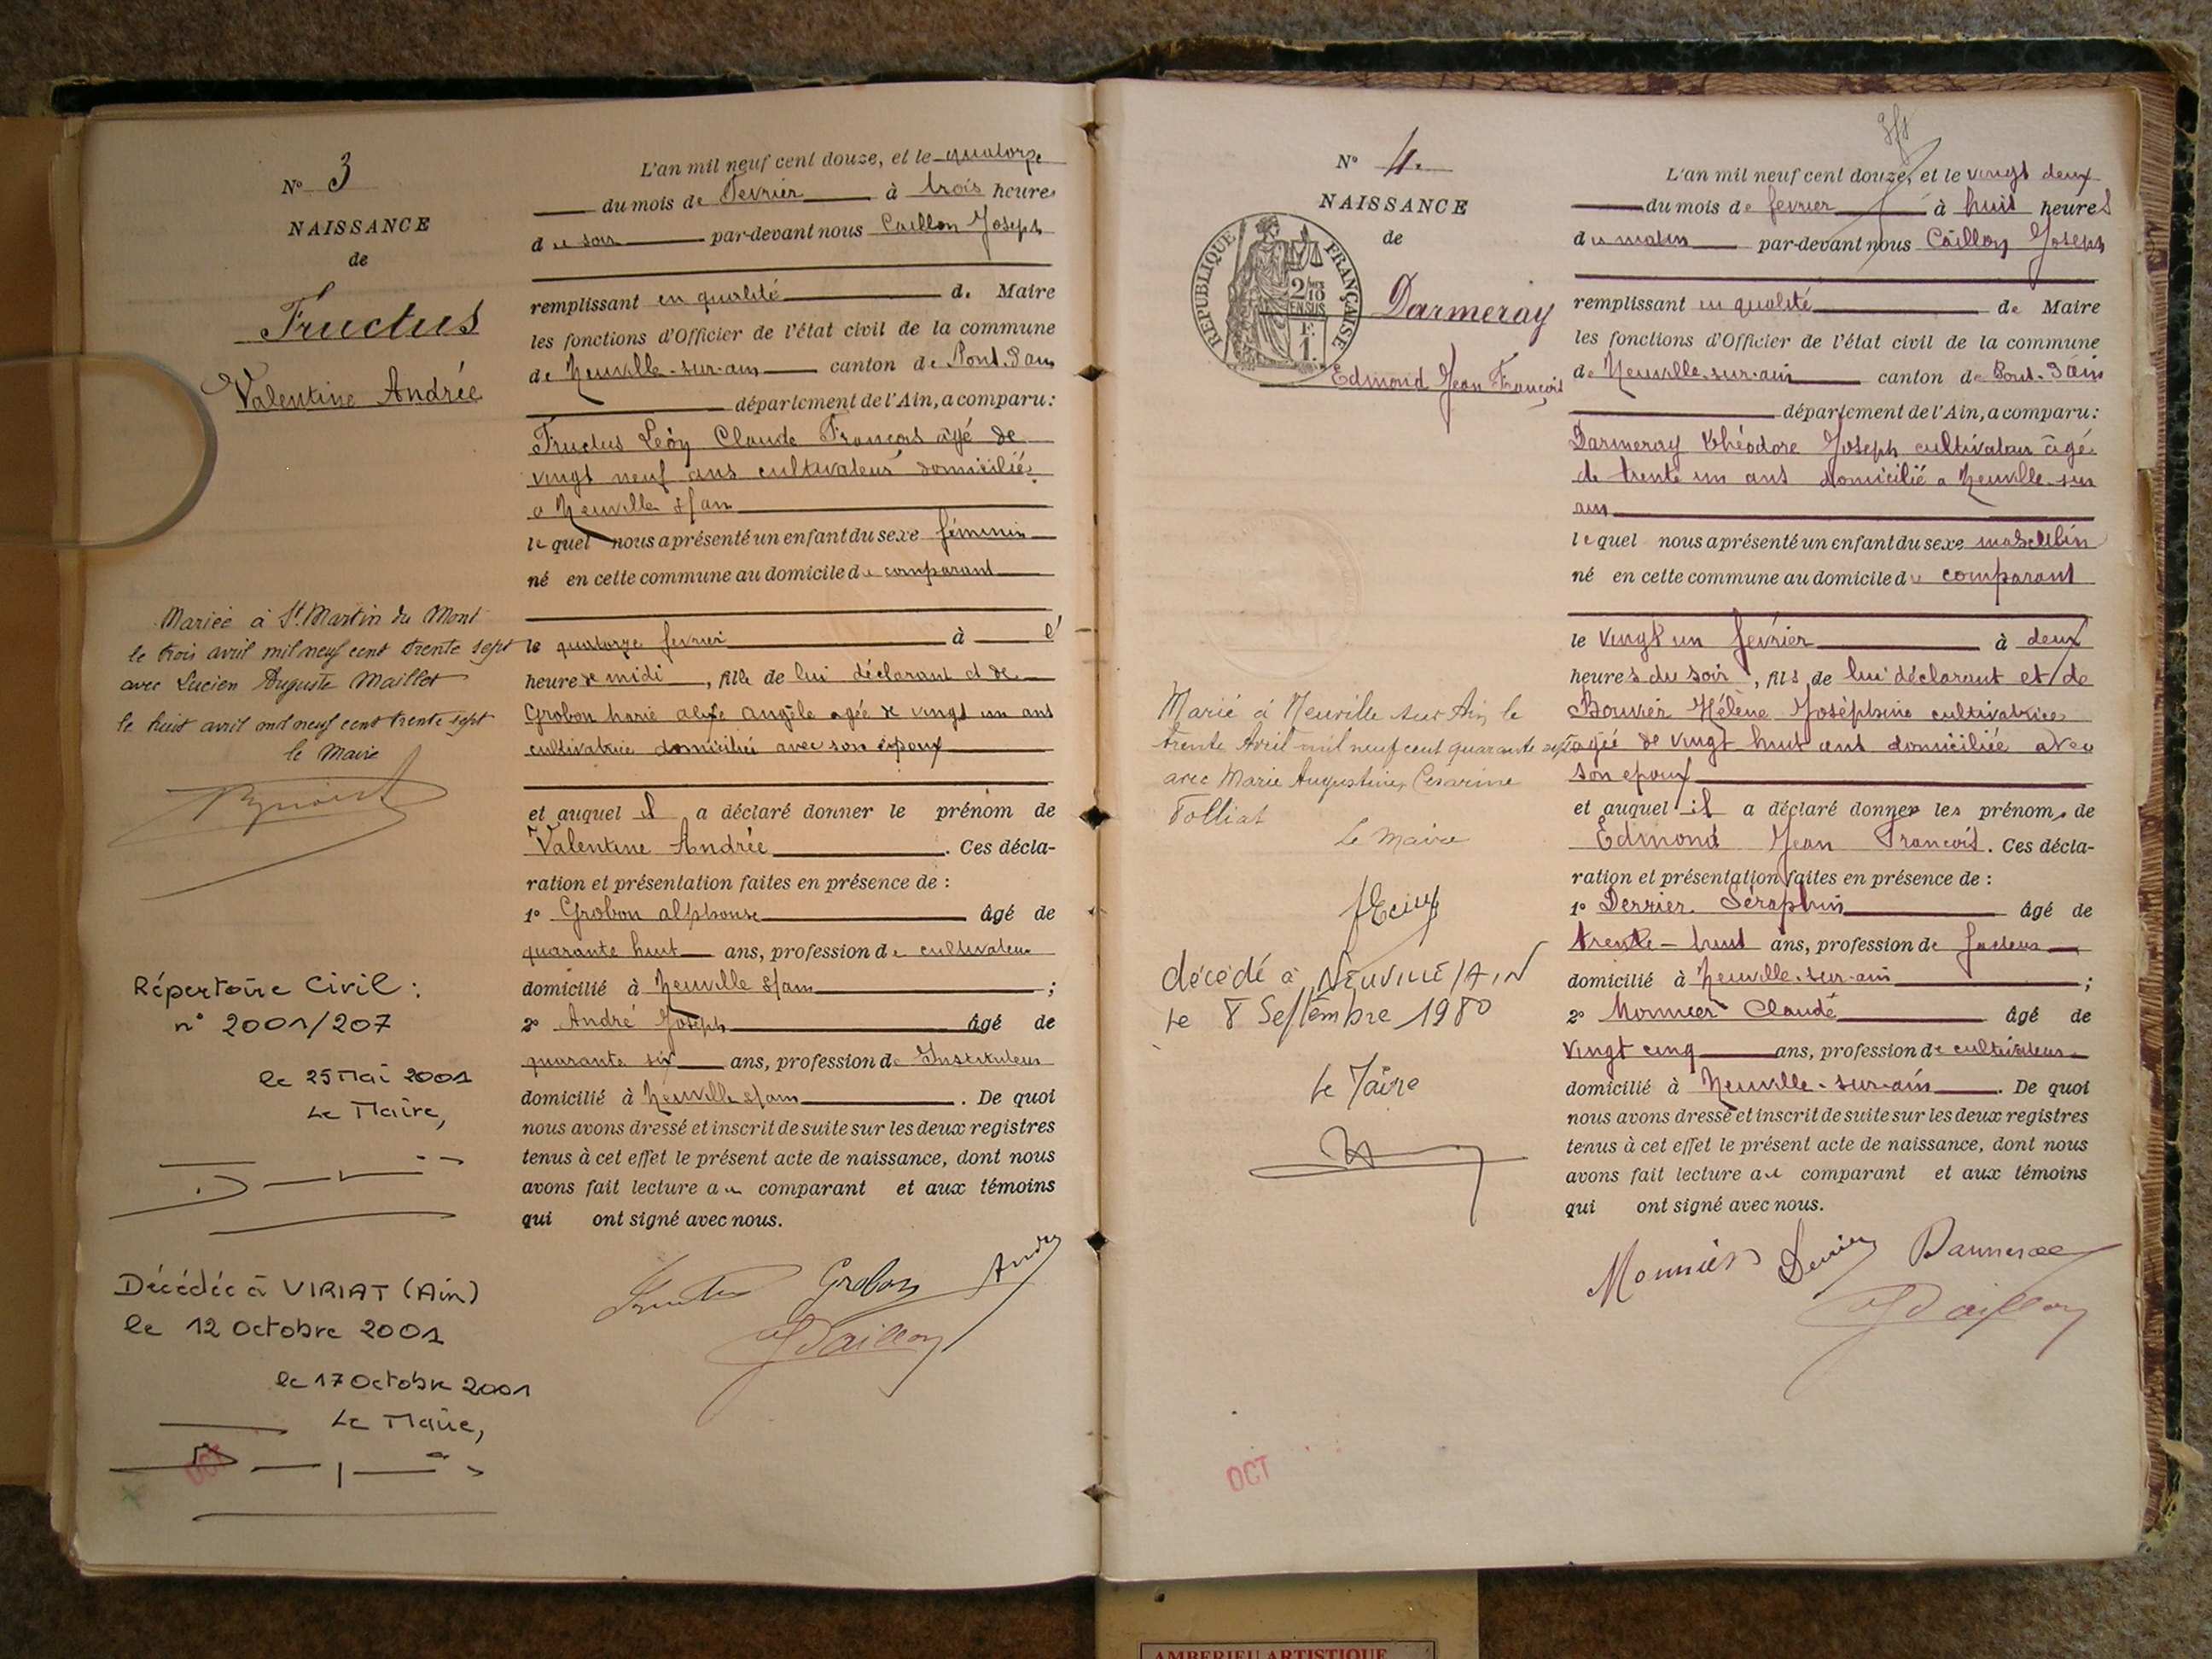 Nº 3
NAISSANCE
de
Fructus
Valentine Andrée
Mariée à St. Martin du Mont
le trois avril mil neuf cent trente sept
avec Lucien Auguste Maillet
le huit avril mil neuf cent trente sept
le Maire
Répertoire Civil :
n° 2001/207
le 25 Mai 2001
Le Maire,
Décédée à VIRIAT (Ain)
le 12 Octobre 2001
le 17 Octobre 2001
Le Maire,
OCT
L'an mil neuf cent douze, et le quatorze
du mois de fevrier à trois heures
du soir par-devant nous Caillon Joseph
remplissant en qualité de Maire
les fonctions d'Officier de l'état civil de la commune
de Neuville-sur-ain canton de Pont-d'ain
département de l'Ain, a comparu :
Fructus Léon Claude François âgé de
vingt neuf ans cultivateur domicilié
a Neuville s/ain
lequel nous a présenté un enfant du sexe féminin
né en cette commune au domicile du comparant
le quatorze fevrier à
heure de midi, fille de lui déclarant et de
Grobon marie angèle agée de vingt un ans
cultivatrice domiciliée avec son époux
et auquel il a déclaré donner le prénom de
Valentine Andrée. Ces décla-
ration et présentation faites en présence de :
1º Grobon alphonse âgé de
quarante huit ans, profession de cultivateur
domicilié à Neuville s/ain ;
2º André Joseph âgé de
quarante six ans, profession de Instituteur
domicilié à Neuville s/ain. De quoi
nous avons dressé et inscrit de suite sur les deux registres
tenus à cet effet le présent acte de naissance, dont nous
avons fait lecture au comparant et aux témoins
qui ont signé avec nous.
Fructus Grobon André
Caillon
Nº 4.
NAISSANCE
de
RÉPUBLIQUE FRANÇAISE
2/10 EN SUS
1 F.
Darmeray
Edmond Jean François
Marié à Neuville sur Ain le
trente Avril mil neuf cent quarante sept
avec Marie Augustine Césarine
Folliat
Le Maire
décédé à NEUVILLE/AIN
le 8 Septembre 1980
Le Maire
OCT
L'an mil neuf cent douze, et le vingt deux
du mois de fevrier à huit heures
du matin par-devant nous Caillon Joseph
remplissant en qualité de Maire
les fonctions d'Officier de l'état civil de la commune
de Neuville-sur-ain canton de Pont-d'ain
département de l'Ain, a comparu :
Darmeray théodore Joseph cultivateur âgé
de trente un ans domicilié a Neuville-sur
ain
lequel nous a présenté un enfant du sexe masculin
né en cette commune au domicile du comparant
le vingt un fevrier à deux
heures du soir, fils de lui déclarant et de
Bouvier Hélène Joséphine cultivatrice
agée de vingt huit ans domiciliée avec
son epoux
et auquel il a déclaré donner les prénoms de
Edmond Jean François. Ces décla-
ration et présentation faites en présence de :
1º Derrier Séraphin âgé de
trente-huit ans, profession de facteur
domicilié à Neuville-sur-ain ;
2º Monnier Claude âgé de
vingt cinq ans, profession de cultivateur
domicilié à Neuville-sur-ain. De quoi
nous avons dressé et inscrit de suite sur les deux registres
tenus à cet effet le présent acte de naissance, dont nous
avons fait lecture au comparant et aux témoins
qui ont signé avec nous.
Monnier Derrier Darmeray
Caillon
AMBERIEU ARTISTIQUE